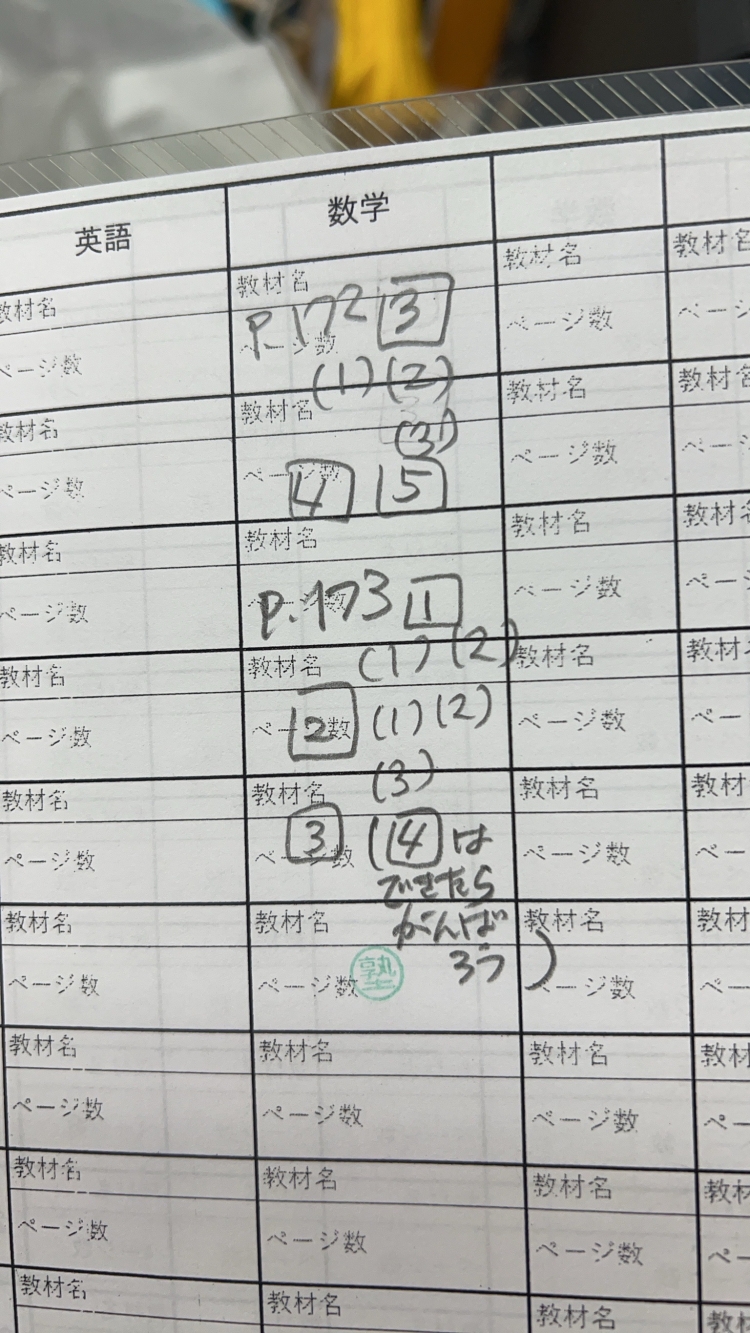 英語
数学
教材名
教材名
教材名
教材名
P.172 3
ページ数
ページ数
ページ数
ページ
(1)(2)
教材名
教材名
教材名
教材名
(3)
ページ数
ページ数
ページ数
ページ
4 5
教材名
教材名
教材名
教材名
ページ数
ページ数
ページ数
ページ
P.173 1
教材名
教材名
教材名
教材
(1)(2)
ページ数
ページ数
ページ数
ペー
2 (1)(2)
教材名
教材名
教材名
教材
(3)
ページ数
ページ数
ページ数
ペー
3 (4は
できたら
教材名
教材名
教材名
教材
がんば
ページ数
ページ数
ページ数
ペー
ろう)
塾
教材名
教材名
教材名
教材
ページ数
ページ数
ページ数
ペー
教材名
教材名
教材名
教材
ページ数
ページ数
ページ数
ペー
教材名
教材名
教材名
教材